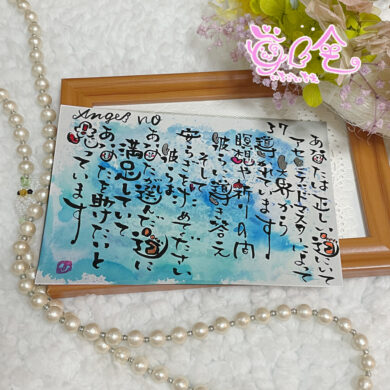 Angel no
37
あなたは正しい道にいて
アセンデッドマスターによって
天界から
導かれています
瞑想や祈りの間
彼らの導き答え
そして
受けとめてください
彼らは
あなたが選んだ道に
満足していて
あなたを助けたいと
思っています